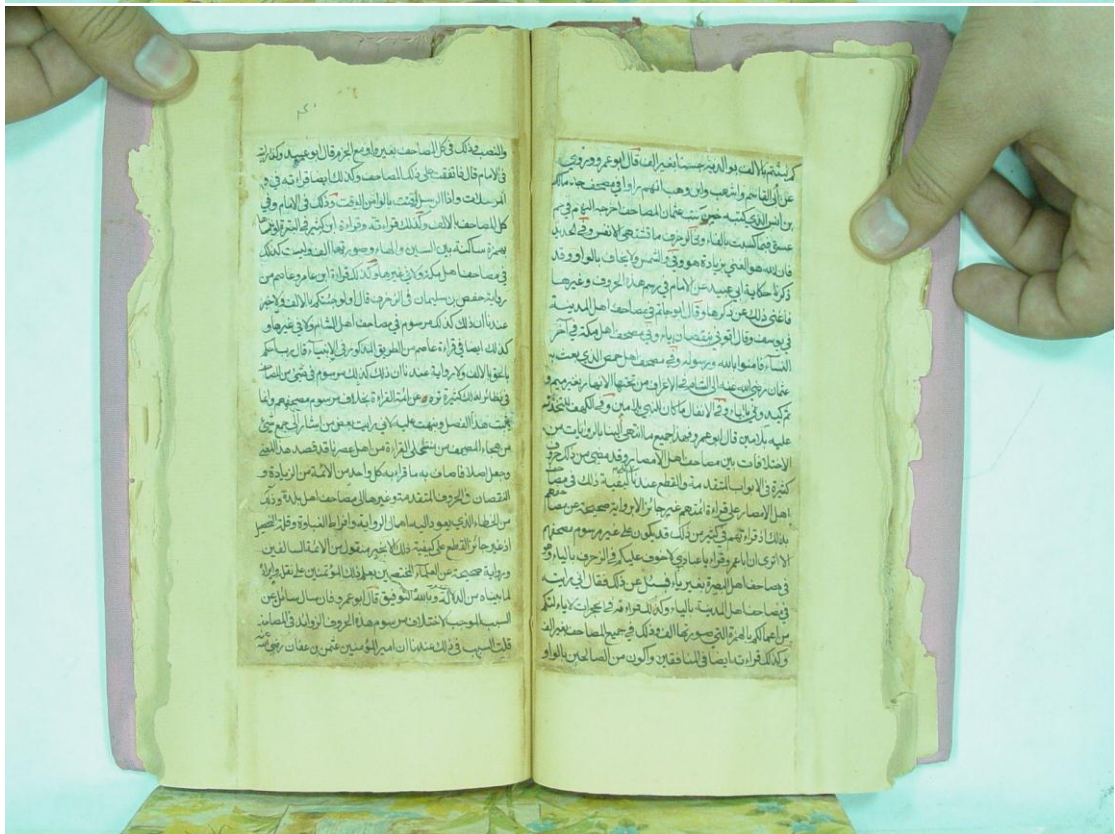 كرلئتم بالالف بوالديه حسنا بغير الف قال ابو عمرو وروى
عن ابي القاسم واشهب وابن وهب انهم راوا في مصحف جد مالك
بن انس الذي كتبه حين كتب عثمان المصاحف اخرجه اليهم في حم
عسق فبما كسبت بالفاء وفي الزخرف ما تشتهي الانفس وفي الحديد
فان الله هو الغني بزيادة هو وفي والشمس ولا يخاف بالواو وقد
ذكرنا حكاية ابي عبيد عن الامام في رسم هذه الحروف وغيرها
فاغنى ذلك عن ذكرها وقال ابو حاتم في مصاحف اهل المدينة
في يوسف وقال الملك ائتوني بنقصان ياء وفي مصحف اهل مكة في آخر
النساء فامنوا بالله وبرسوله وفي مصحف اهل حمص الذي بعث به
عثمان رضي الله عنه الى الشام في الاعراف من تحتها الانهار بغير ميم و
ثم كيدوني بالياء وفي الانفال ما كان للنبي بلامين وفي الكهف لتخذت
عليه بلامين قال ابو عمرو فهذا جميع ما انتهى الينا بالروايات من
الاختلافات بين مصاحف اهل الامصار وقد مضى من ذلك حروف
كثيرة في الابواب المتقدمة والقطع عندنا بكيفية ذلك في مصاحف
اهل الامصار على قراءة ائمتهم غير جائز الا برواية صحيحة عن مصاحفهم
بذلك اذ قراءتهم في كثير من ذلك قد يكون على غير مرسوم مصحفهم
الا ترى ان ابا عمرو قراء يا عبادي لا خوف عليكم في الزخرف بالياء وهو
في مصاحف اهل البصرة بغير ياء فسئل عن ذلك فقال اني رايته
في مصاحف اهل المدينة بالياء وكذلك قراءته في الحجرات لا يالتكم
من اعمالكم بالهمزة التي صورتها الف وذلك في جميع المصاحف بغير الف
وكذلك قراءته ايضا في المنافقين واكون من الصالحين بالواو
والنصب وذلك في كل المصاحف بغير واو مع الجزم قال ابو عبيد وكذا رايته
في الامام قال فاتفقت على ذلك المصاحف وكذلك ايضا قراءته في و
المرسلات واذا الرسل وقتت بالواو من الوقت وذلك في الامام وفي
كل المصاحف بالالف وكذلك قراءته وقراءة ابن كثير في البقرة او ننساها
بهمزة ساكنة بين السين والهاء وصورتها الف وليست كذلك
في مصاحف اهل مكة ولا في غيرها وكذلك قراءة ابن عامر وعاصم من
رواية حفص بن سليمان في الزخرف قال اولو جئتكم بالالف ولا خبر
عندنا ان ذلك كذلك مرسوم في مصاحف اهل الشام ولا في غيرها و
كذلك ايضا في قراءة عاصم من الطريق المذكور في الانبياء قال رب احكم
بالحق بالالف ولا رواية عندنا ان ذلك كذلك مرسوم في شيء من المصاحف
في نظائر لذلك كثيرة ترد عن ائمة القراءة بخلاف مرسوم مصحفهم وانما
بينت هذا الفصل ونبهت عليه لاني رايت بعض من اشار الى جمع شيء
من هجاء المصحف من منتحلي القراءة من اهل عصرنا قد قصد هذا المعنى
وجعله اصلا فاضاف به ما قراء به كل واحد من الائمة من الزيادة و
النقصان في الحروف المتقدمة وغيرها الى مصاحف اهل بلده وذلك
من الخطاء الذي يعود اليه اهمال الرواية وافراط الغباوة وقلة التحصيل
اذ غير جائز القطع على كيفية ذلك الا بخبر منقول من الائمة السالفين
ورواية صحيحة عن العلماء المختصين بعلم ذلك المؤتمنين على نقله وايراده
لما بيناه من الدلالة وبالله التوفيق قال ابو عمرو فان سال سائل عن
السبب الموجب لاختلاف مرسوم هذه الحروف الزوائد في المصاحف
قلت السبب في ذلك عندنا ان امير المؤمنين عثمن بن عفان رضي الله عنه